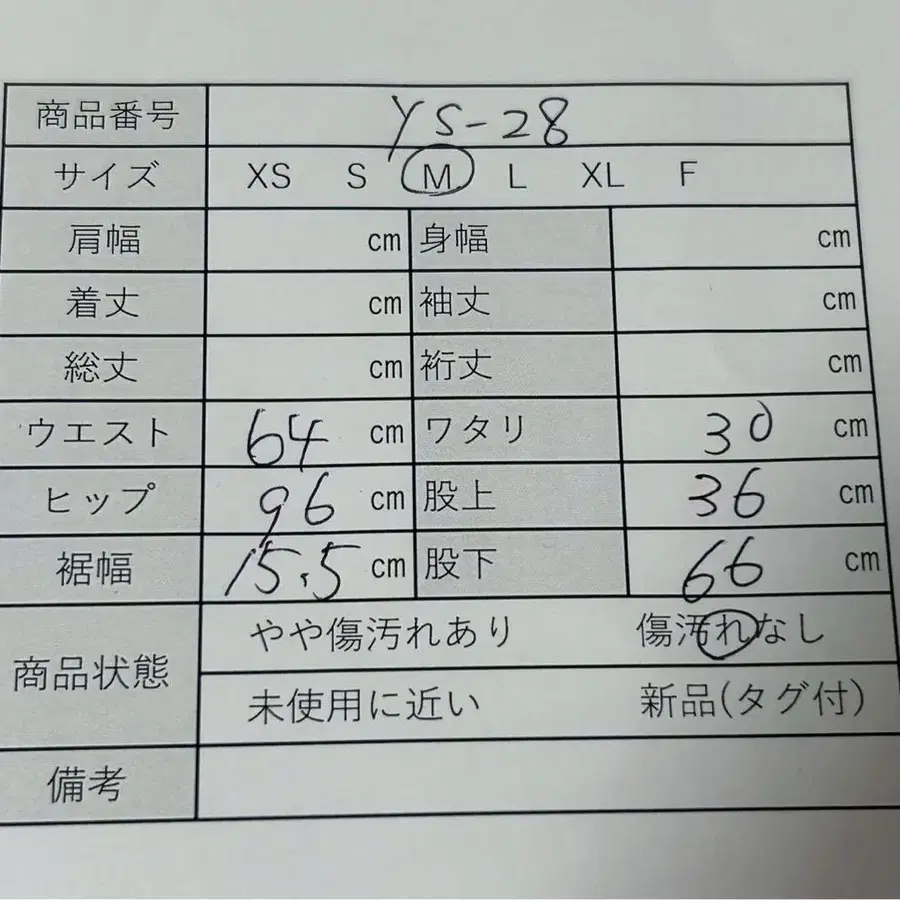 商品番号 YS-28
サイズ XS S M L XL F
肩幅 cm 身幅 cm
着丈 cm 袖丈 cm
総丈 cm 裄丈 cm
ウエスト 64 cm ワタリ 30 cm
ヒップ 96 cm 股上 36 cm
裾幅 15.5 cm 股下 66 cm
商品状態
やや傷汚れあり 傷汚れなし
未使用に近い 新品(タグ付)
備考